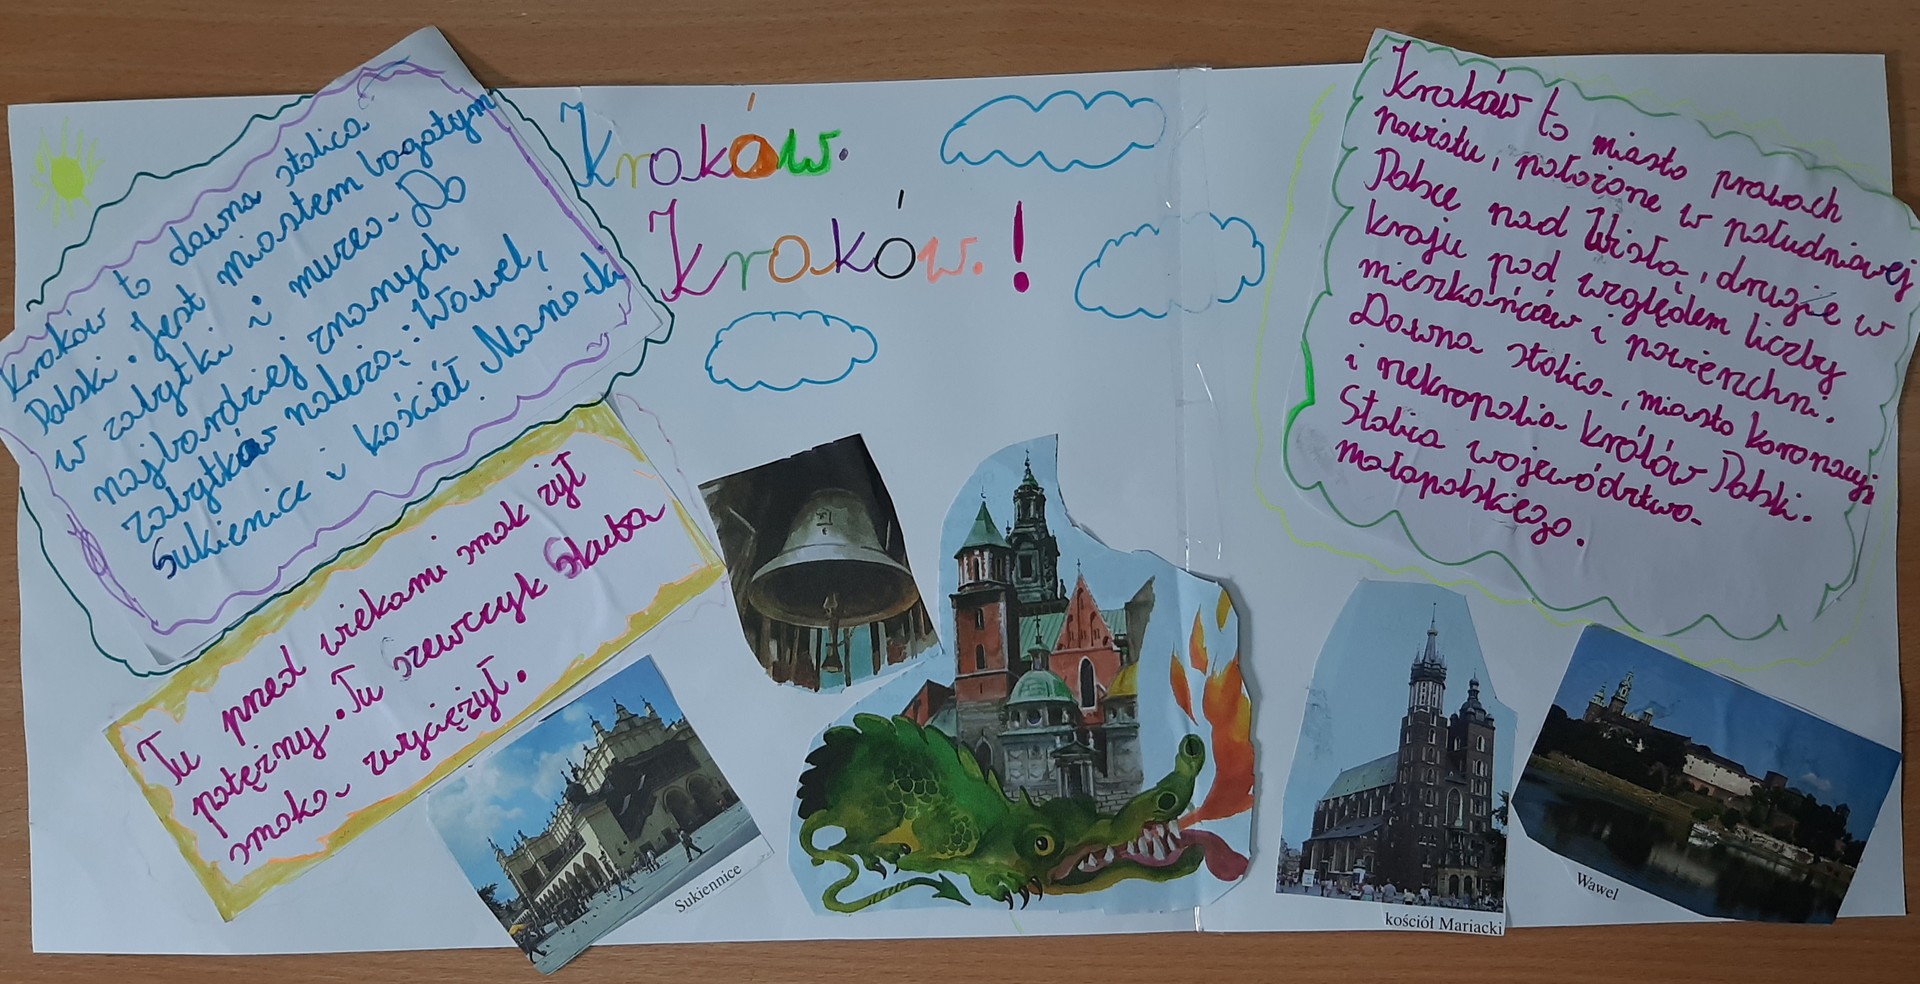 Kraków to dawna stolica
Polski. Jest miastem bogatym
w zabytki i muzea. Do
najbardziej znanych
zabytków należą: Wawel,
Sukienice i kościół Mariacki
Tu przed wiekami smok żył
potężny. Tu szewczyk Skuba
smoka zwyciężył.
Kraków.
Kraków.!
Kraków to miasto prawach
powiatu, położone w południowej
Polsce nad Wisłą, drugie w
kraju pod względem liczby
mieszkańców i powierzchni.
Dawna stolica, miasto koronacyji
i nekropolia królów Polski.
Stolica województwa
małopolskiego.
Sukiennice
kościół Mariacki
Wawel